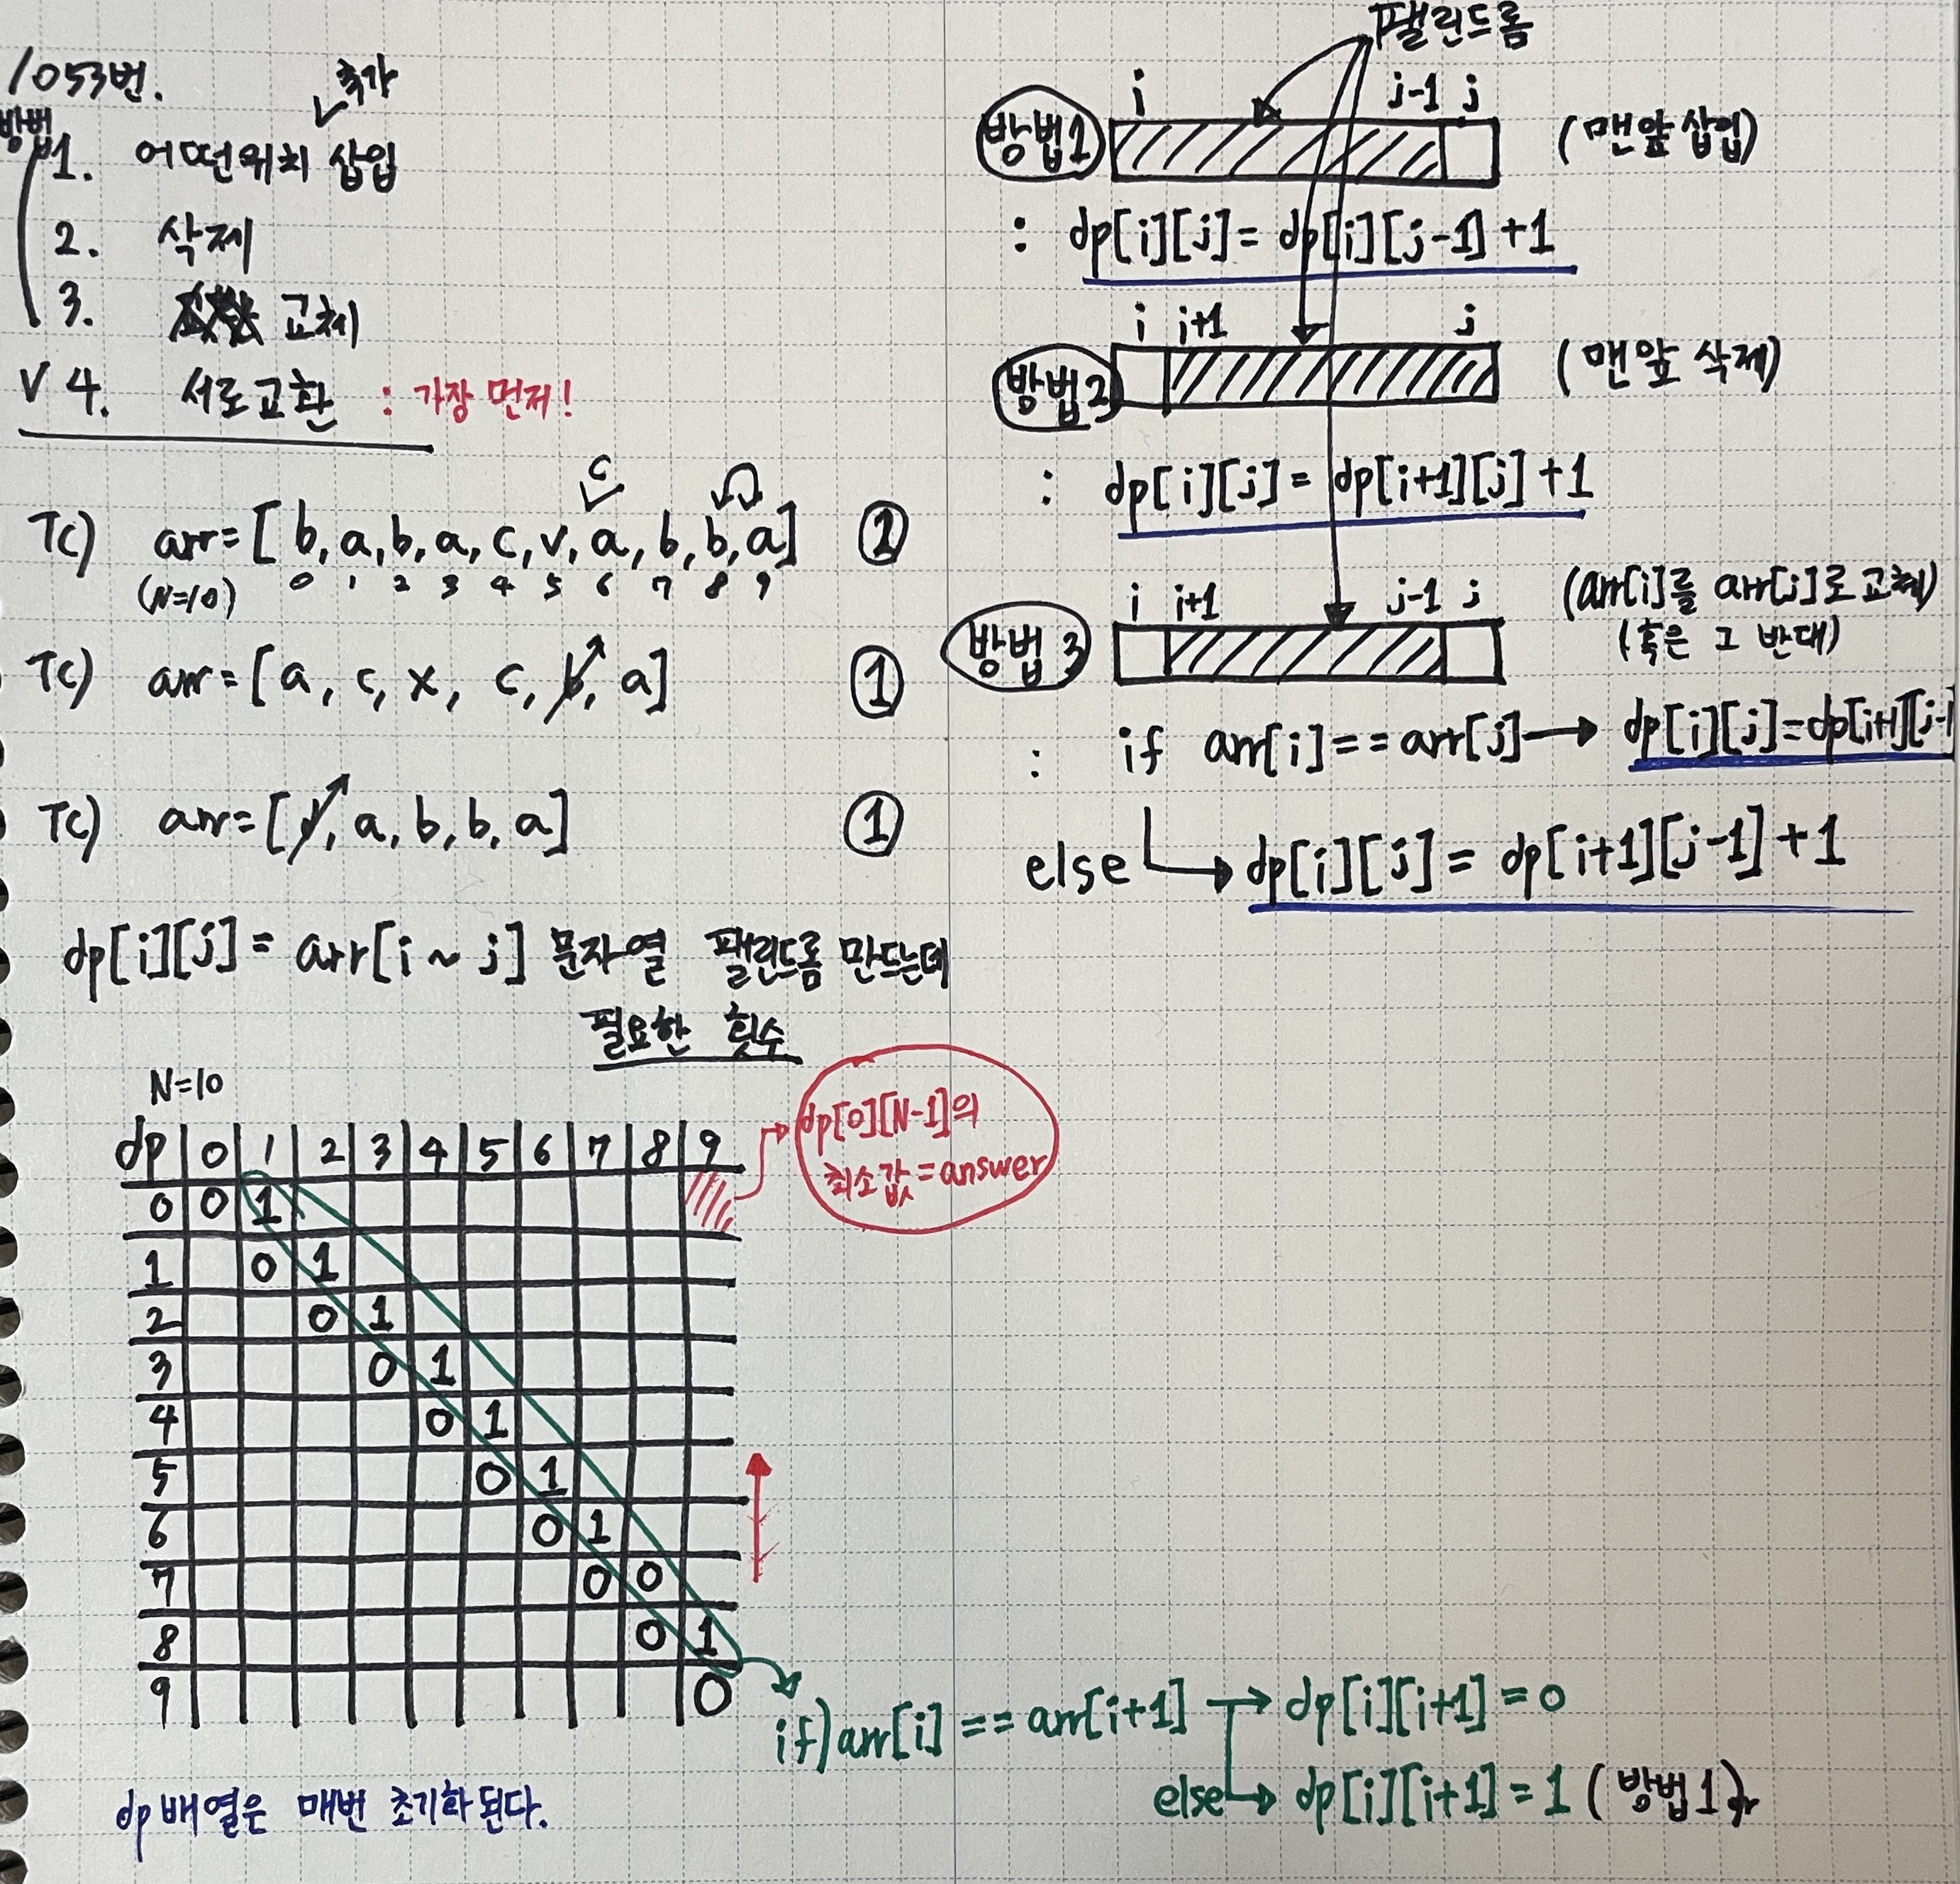 1053번.
추가
방법
1. 어떤위치 삽입
2. 삭제
3. 교체
V 4. 서로교환 : 가장 먼저!
c
TC) arr=[b,a,b,a,c,v,a,b,b,a] ②
(N=10) 0 1 2 3 4 5 6 7 8 9
TC) arr=[a, c, x, c, b, a] ①
TC) arr=[v, a, b, b, a] ①
dp[i][j] = arr[i ~ j] 문자열 팰린드롬 만드는데
필요한 횟수
N=10
dp 0 1 2 3 4 5 6 7 8 9
0 0 1
1 0 1
2 0 1
3 0 1
4 0 1
5 0 1
6 0 1
7 0 0
8 0 1
9 0
dp[0][N-1]의
최소값 = answer
if) arr[i] == arr[i+1] → dp[i][i+1] = 0
else → dp[i][i+1] = 1 (방법1)
dp배열은 매번 초기화된다.
팰린드롬
i j-1 j
방법1 (맨앞 삽입)
: dp[i][j] = dp[i][j-1] +1
i i+1 j
방법2 (맨앞 삭제)
: dp[i][j] = dp[i+1][j] +1
i i+1 j-1 j (arr[i]를 arr[j]로 교체)
방법3 (혹은 그 반대)
: if arr[i]==arr[j] → dp[i][j]=dp[i+1][j-1
else → dp[i][j] = dp[i+1][j-1] +1